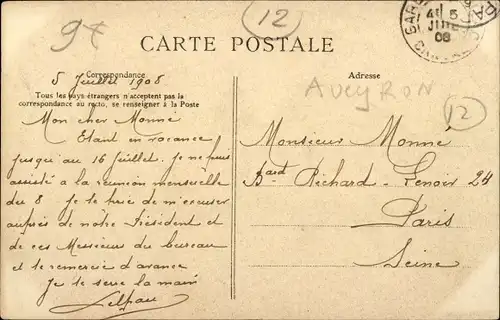 9+
12
CARTE POSTALE
Correspondance
Tous les pays étrangers n'acceptent pas la
correspondance au recto, se renseigner à la Poste
5 Juillet 1908
Mon cher Monné
Etant en vacance
jusqu'au 16 Juillet. Je ne puis
assisté a la réunion mensuelle
du 8 Je te prie de m'excuser
auprès de notre Président et
de ces Messieurs du bureau
et te remercie d'avance
Je te serre la main
Adresse
AVEYRON
12
Monsieur Monné
Bard Richard-Lenoir 24
Paris
Seine